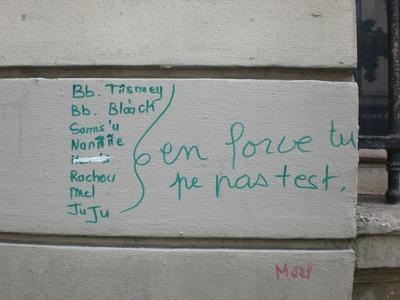 Bb. Tismey
Bb. Blàack
Sams'u
Nannïie
Rachou
Mel
JuJu
en force tu
pe pas test.
Maël